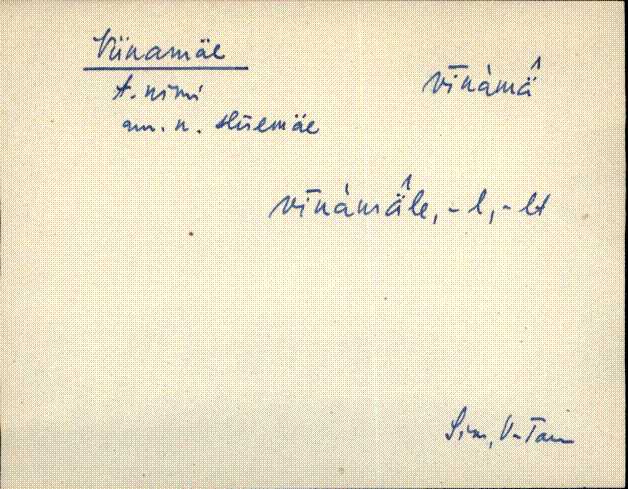 Viinamäe
t. nimi
am. n. Hiiemäe
vīnàmä̂
vīnàmä̂le, -l, -lt
Sim, V-Tam